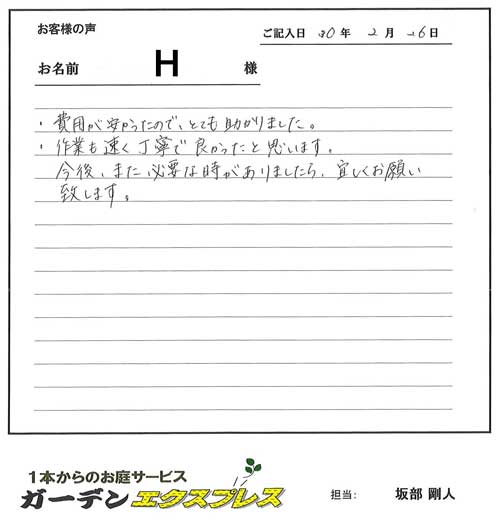 お客様の声
ご記入日 30年 2月 26日
お名前 H 様
・費用が安かったので、とても助かりました。
・作業も速く丁寧で良かったと思います。
今後、また必要な時がありましたら、宜しくお願い
致します。
1本からのお庭サービス
ガーデンエクスプレス
担当: 坂部 剛人